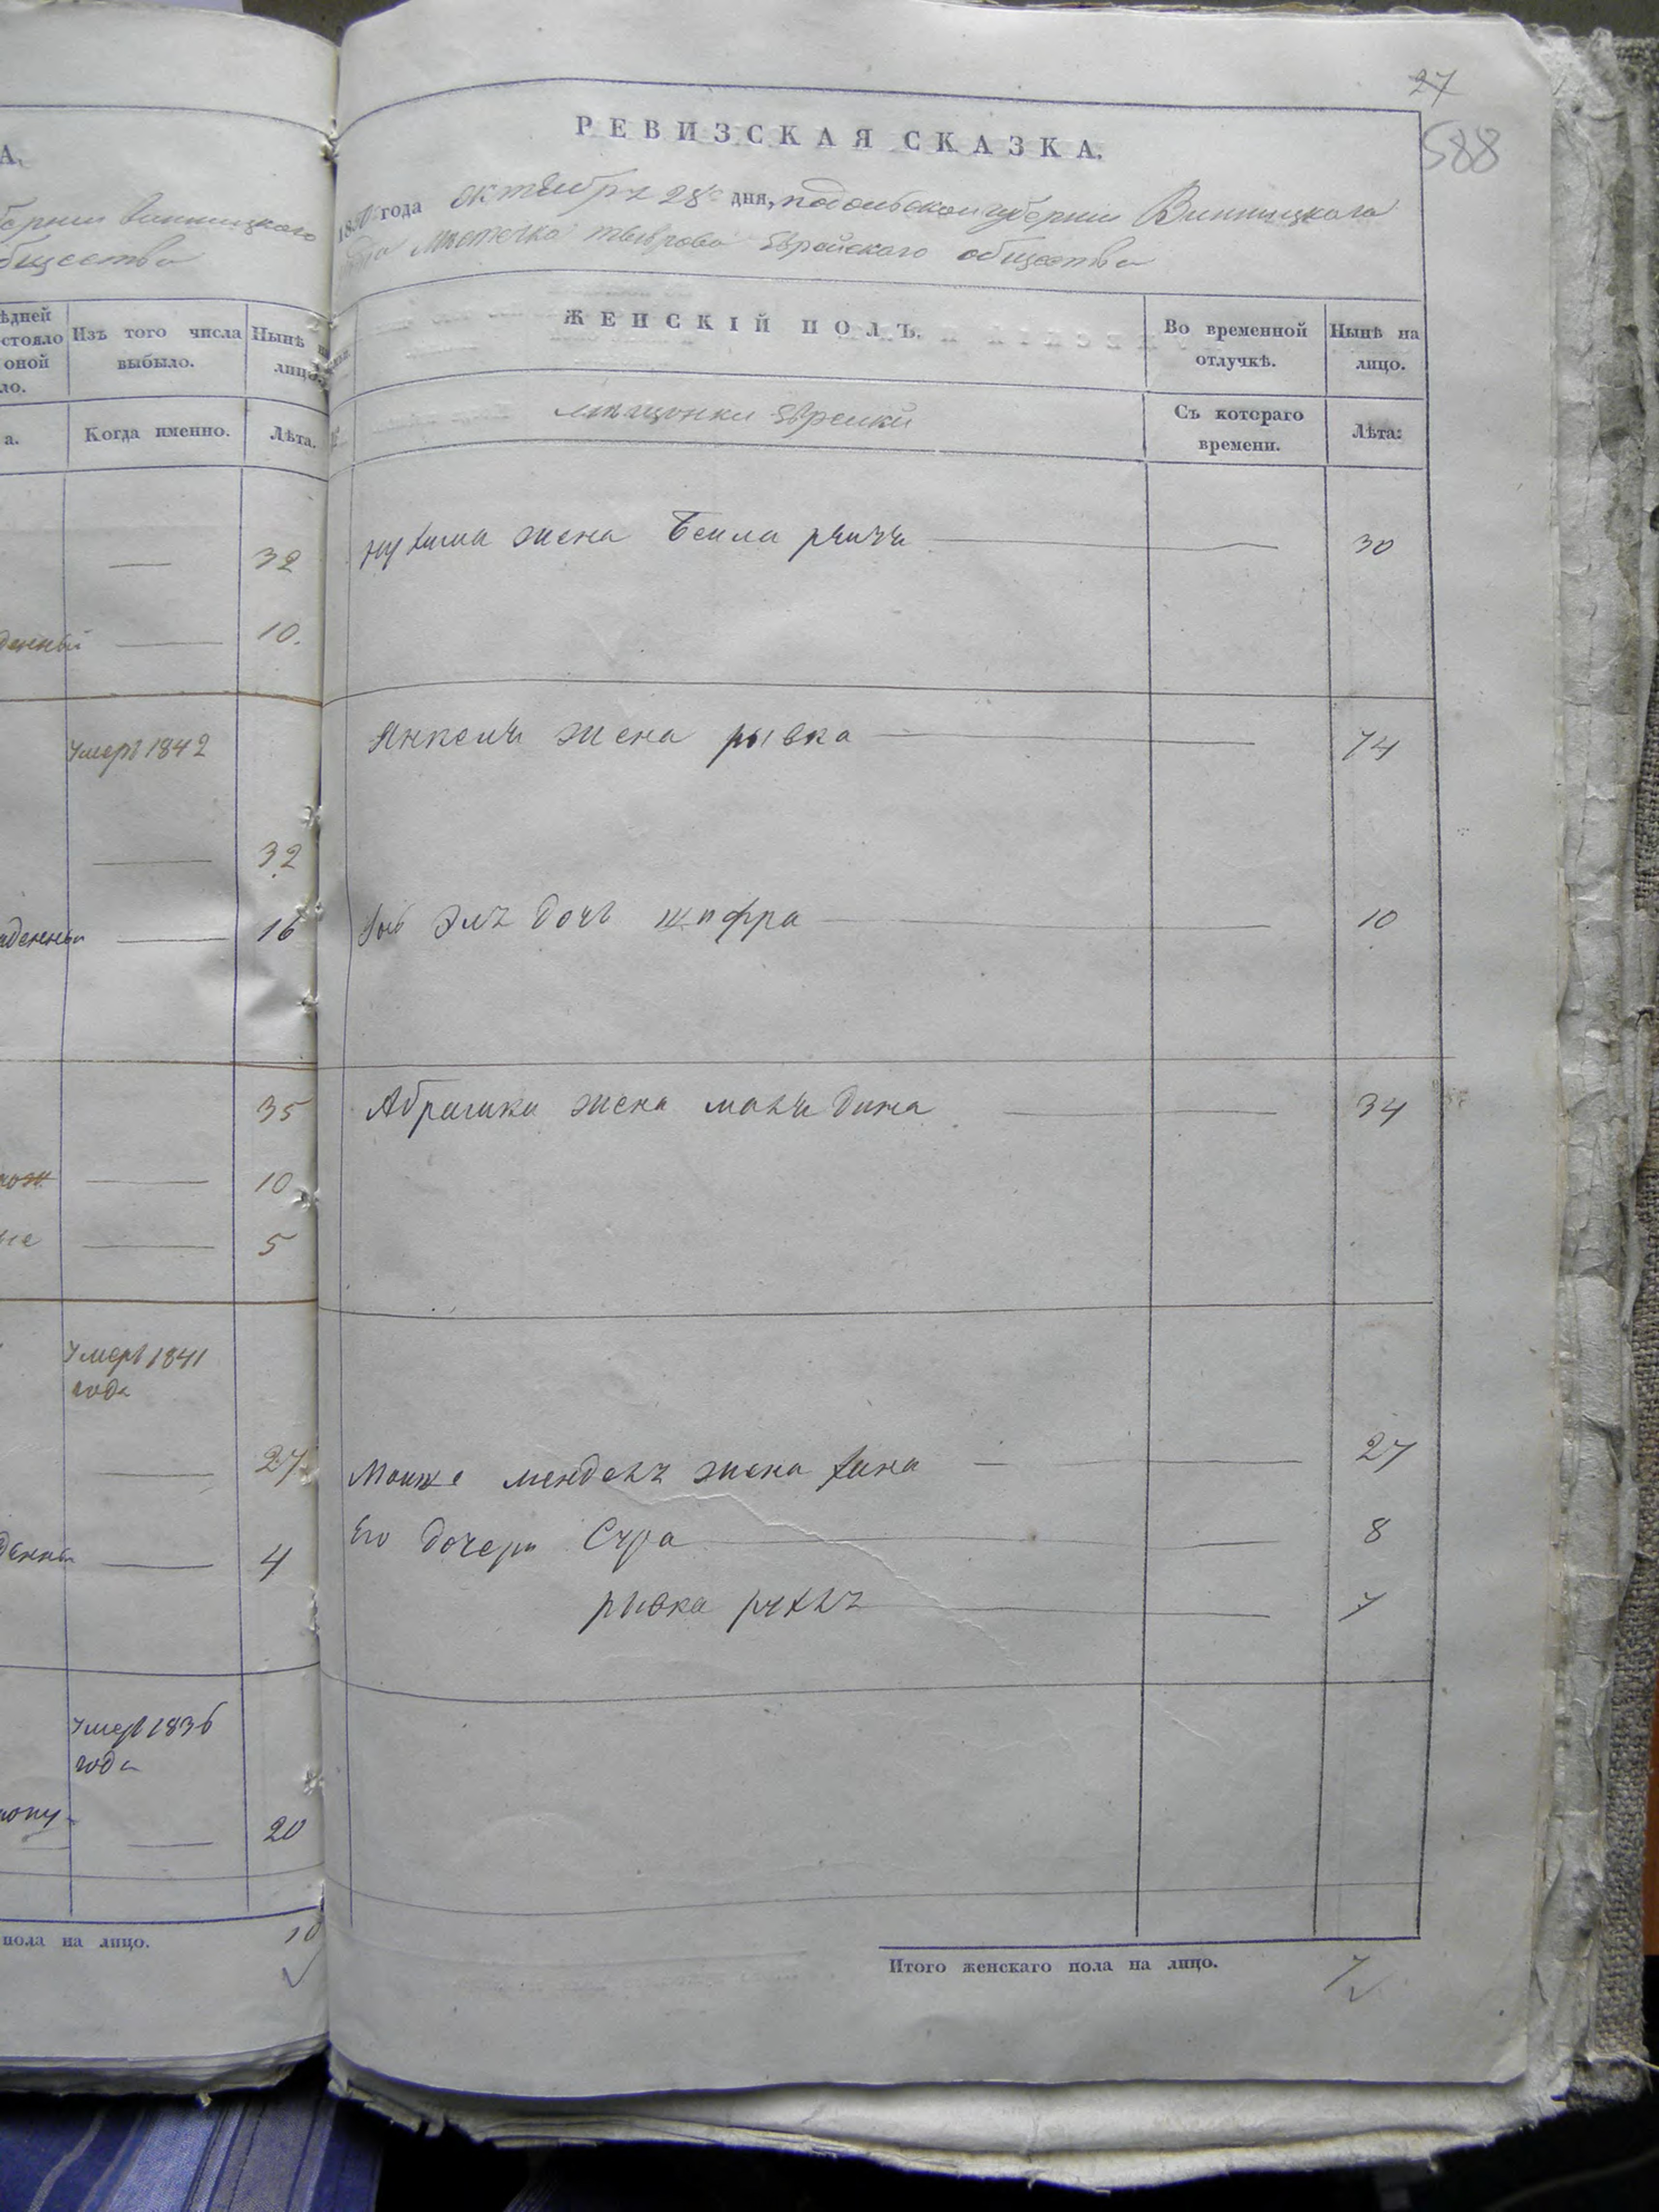 А,
берніи Винницкаго
бщества
ѣдней
стояло
оной
ло.
Изъ того числа
выбыло.
Нынѣ н
лицо.
а.
Когда именно.
Лѣта.
— 32
денный — 10.
Умеръ 1842
— 32
жденны — 16
35
рож — 10
ые — 5
Умеръ 1841
года
— 27
денны — 4
Умеръ 1836
года
— 20
пола на лицо. 10
27
588
РЕВИЗСКАЯ СКАЗКА.
1850 года октября 28 дня, подольской губерніи Винницкаго
Местечка тыврова Еврейскаго общества
ЖЕНСКІЙ ПОЛЪ.
Во временной
отлучкѣ.
Нынѣ на
лицо.
мещанки Еврейки
Съ котораго
времени.
Лѣта:
жена Бейла — — 30
Янкеля жена рывка — — 74
дочь шпфра — — 10
Абрашка жена дина — — 34
Мошке мендель жена хина — — 27
Его дочери Сура — — 8
рывка рухль — — 7
Итого женскаго пола на лицо. 7